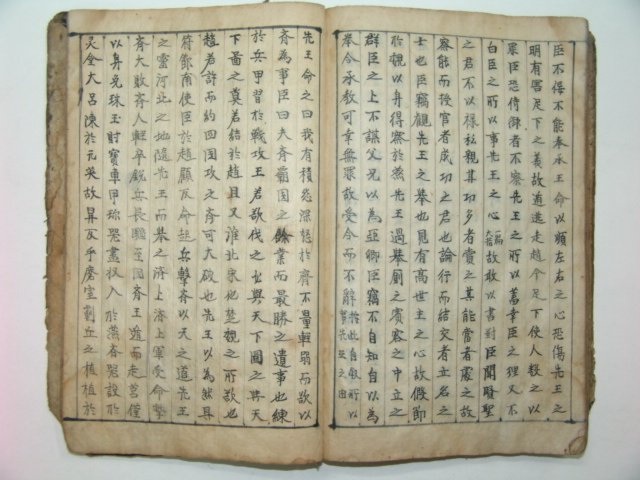 臣不佞不能奉承王命以順左右之心恐傷先王之
明有害足下之義故遁逃走趙今足下使人數之以
罪臣恐侍御者不察先王之所以畜幸臣之理又不
白臣之所以事先王之心一篇大指故敢以書對臣聞賢聖
之君不以祿私親其功多者賞之其能當者處之故
察能而授官者成功之君也論行而結交者立名之
士也臣竊觀先王之舉也見有高世主之心故假節
於魏以身得察於燕先王過舉厠之賓客之中立之
群臣之上不謀父兄以為亞卿臣竊不自知自以為
奉令承教可幸無罪故受令而不辭此自敘所以事先王之由
先王命之曰我有積怨深怒於齊不量輕弱而欲以
齊為事臣曰夫齊霸國之餘業而最勝之遺事也練
於兵甲習於戰攻王若欲伐之必與天下圖之與天
下圖之莫若結於趙且又淮北宋地楚魏之所欲也
趙若許而約四國攻之齊可大破也先王以為然具
符節南使臣於趙顧反命起兵擊齊以天之道先王
之靈河北之地隨先王而舉之濟上濟上軍受命擊
齊大敗齊人輕卒銳兵長驅至國齊王遁而走莒僅
以身免珠玉財寶車甲珍器盡收入於燕齊器設於
大呂陳於元英故鼎反乎磨室薊丘之植植於